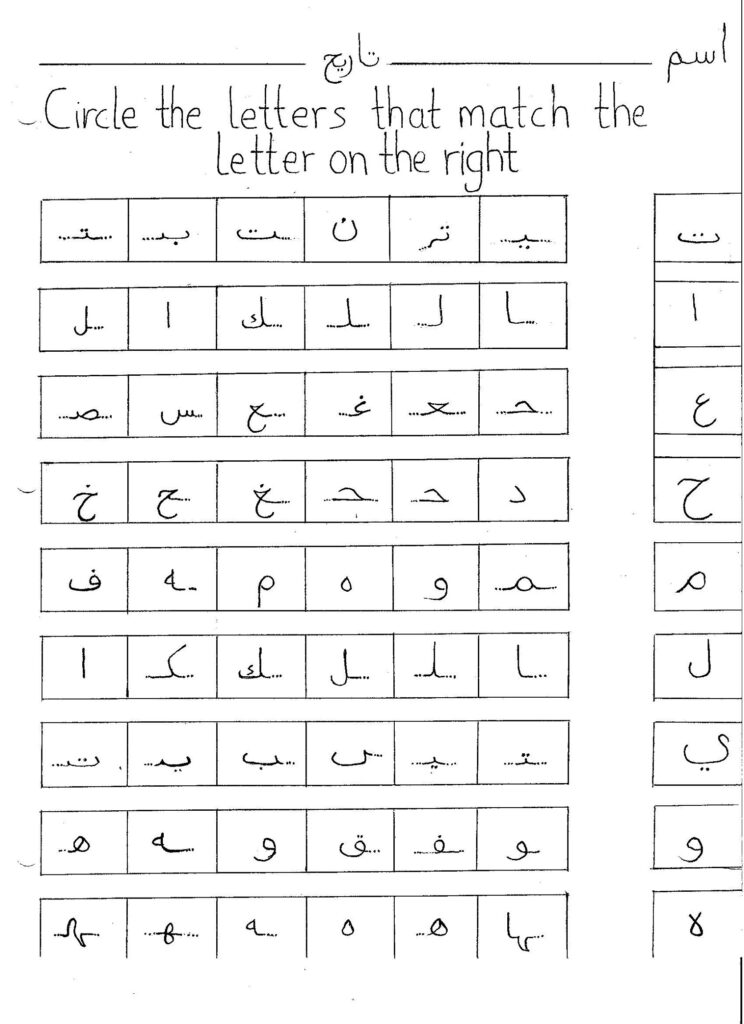 اسم تاريخ
Circle the letters that match the
letter on the right
ت ـيـ تر ن ـت بـ ـتـ
ا ـا لـ ـلـ ـك ا ـل
ع ـحـ ـعـ غـ ـع ـس صـ
ح د حـ ـجـ ـغ ـح خ
م ـمـ و ه م ـه ف
ل ـا ـلـ ـل ـك كـ ا
ي ـتـ ـيـ ـب يـ ـت
و ـو ـفـ ـق و ـه هـ
ه ـها هـ ه ـه ـهـ ـهـ